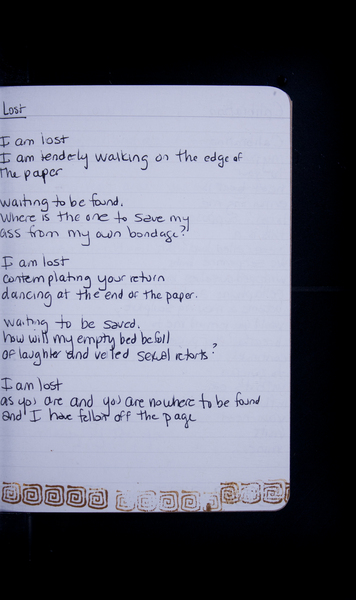 Lost
I am lost
I am tenderly walking on the edge of
the paper
waiting to be found.
Where is the one to save my
ass from my own bondage?
I am lost
contemplating your return
dancing at the end of the paper.
waiting to be saved.
how will my empty bed be full
of laughter and veiled sexual retorts?
I am lost
as you are and you are nowhere to be found
and I have fallen off the page